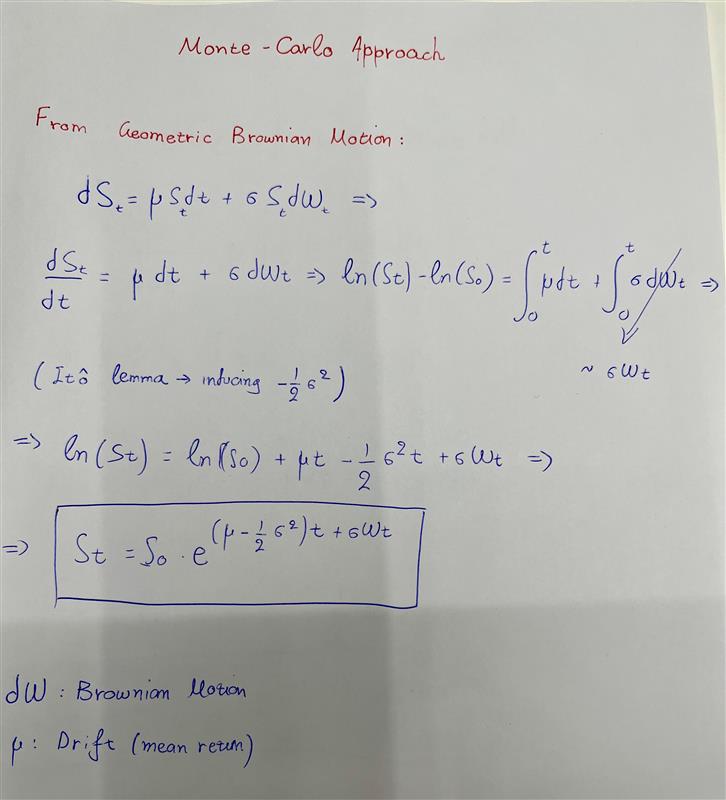 Monte-Carlo Approach
From Geometric Brownian Motion:
dS_t = μ S_t dt + σ S_t dW_t ⇒
dS_t/dt = μ dt + σ dW_t ⇒ ln(S_t) - ln(S_0) = ∫_0^t μ dt + ∫_0^t σ dW_t ⇒
~ σW_t
(Itô lemma → inducing -1/2 σ²)
⇒ ln(S_t) = ln(S_0) + μt - 1/2 σ²t + σW_t ⇒
⇒ S_t = S_0 · e^{(μ - 1/2 σ²)t + σW_t}
dW : Brownian Motion
μ : Drift (mean return)